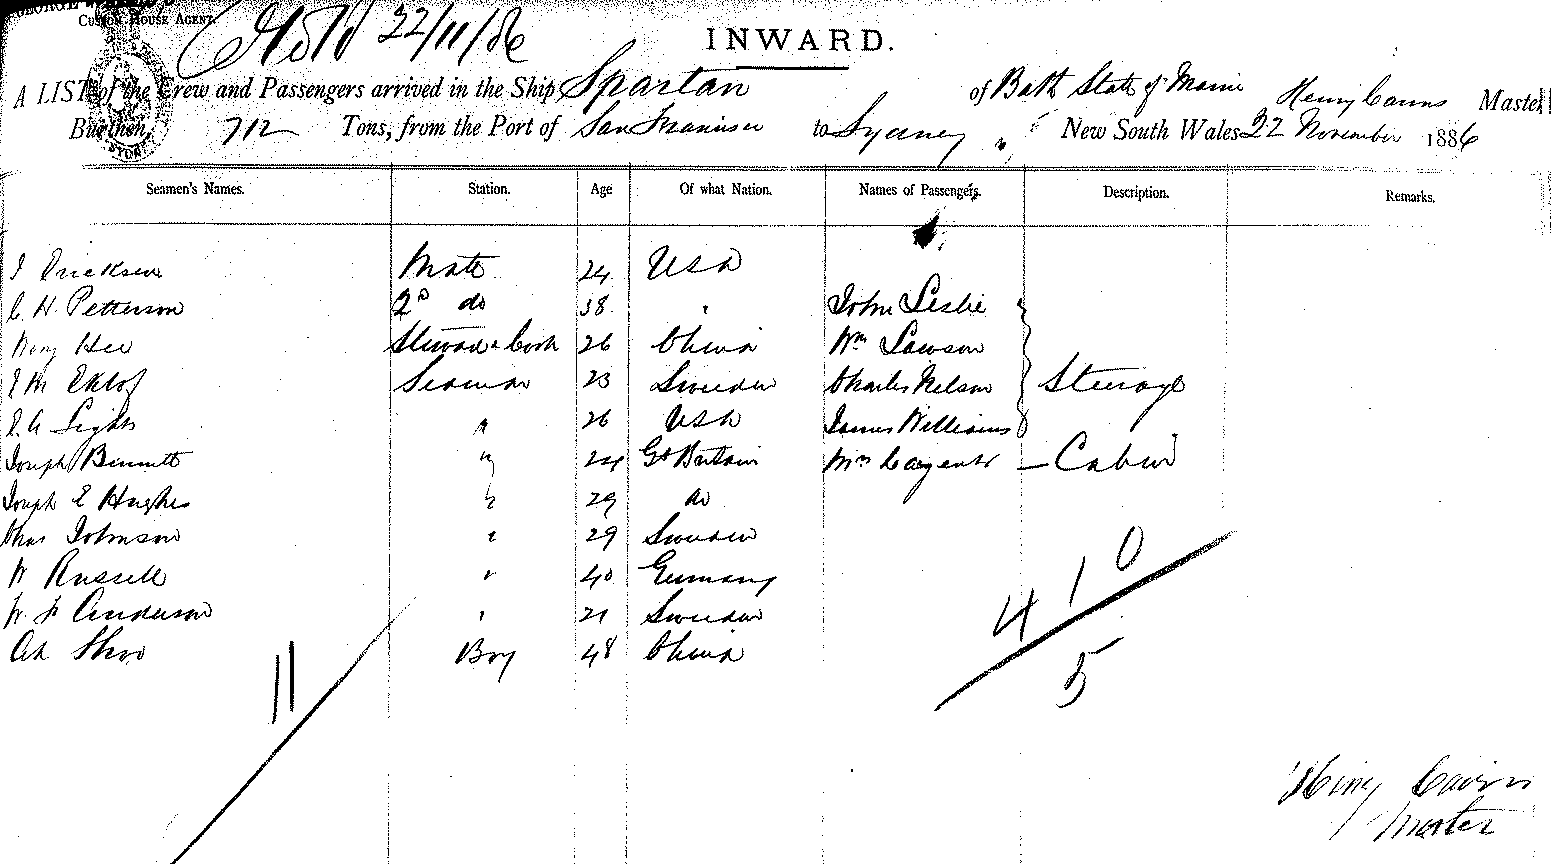 CUSTOM HOUSE AGENT.
22/11/86
INWARD.
A LIST of the Crew and Passengers arrived in the Ship Spartan of Bath State of Maine Henry Cairns Master
Burthen, 712 Tons, from the Port of San Francisco to Sydney New South Wales 22 November 1886
Seamen's Names. Station. Age Of what Nation. Names of Passengers. Description. Remarks.
Erickson Mate 24 USA
C. H. Petterson 2d do 38 " John Leslie
Hee Steward & Cook 26 China Wm Lawson
Seaman 23 Sweden Charles Nelson Steerage
Light " 26 USA James Williams
Joseph Bennett " 24 Gt Britain Mrs Cargent - Cabin
Joseph E Hughes " 29 do
Chas Johnson " 29 Sweden
W Russell " 40 Germany
W. F Anderson " 21 Sweden
Ah Boy 48 China
11
4 1 0
5
Henry Cairns
Master